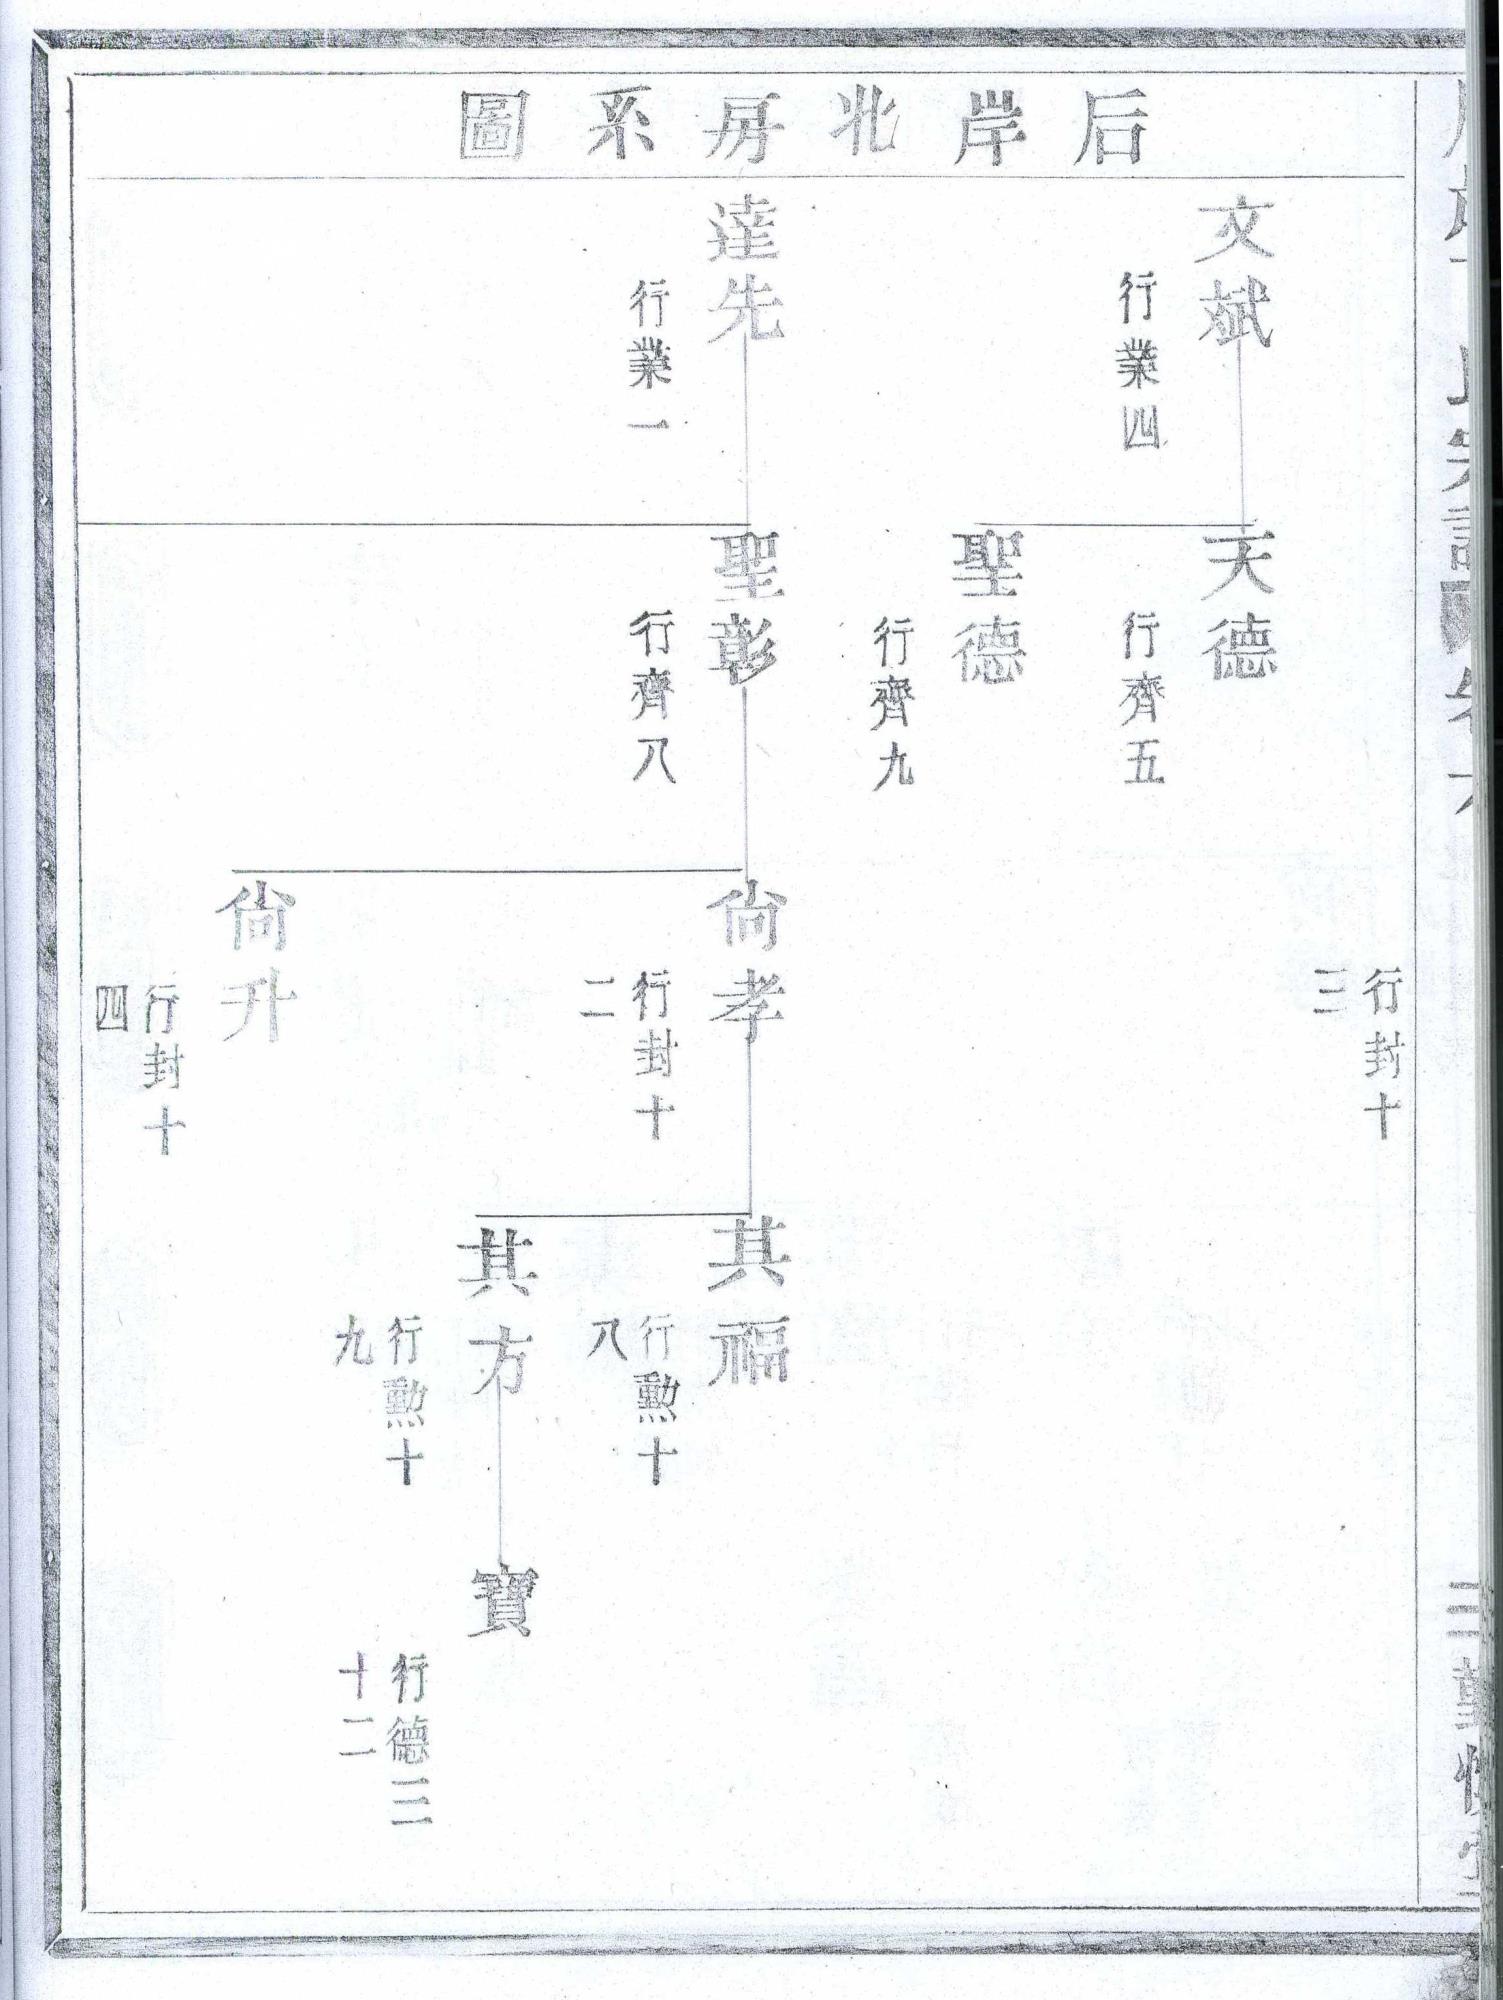 后岸北房系圖
文斌
行業四
達先
行業一
天德
行齊五
聖德
行齊九
聖彰
行齊八
行封十
三
尙孝
行封十
二
尙升
行封十
四
其福
行勲十
八
其方
行勲十
九
寶
行德三
十二